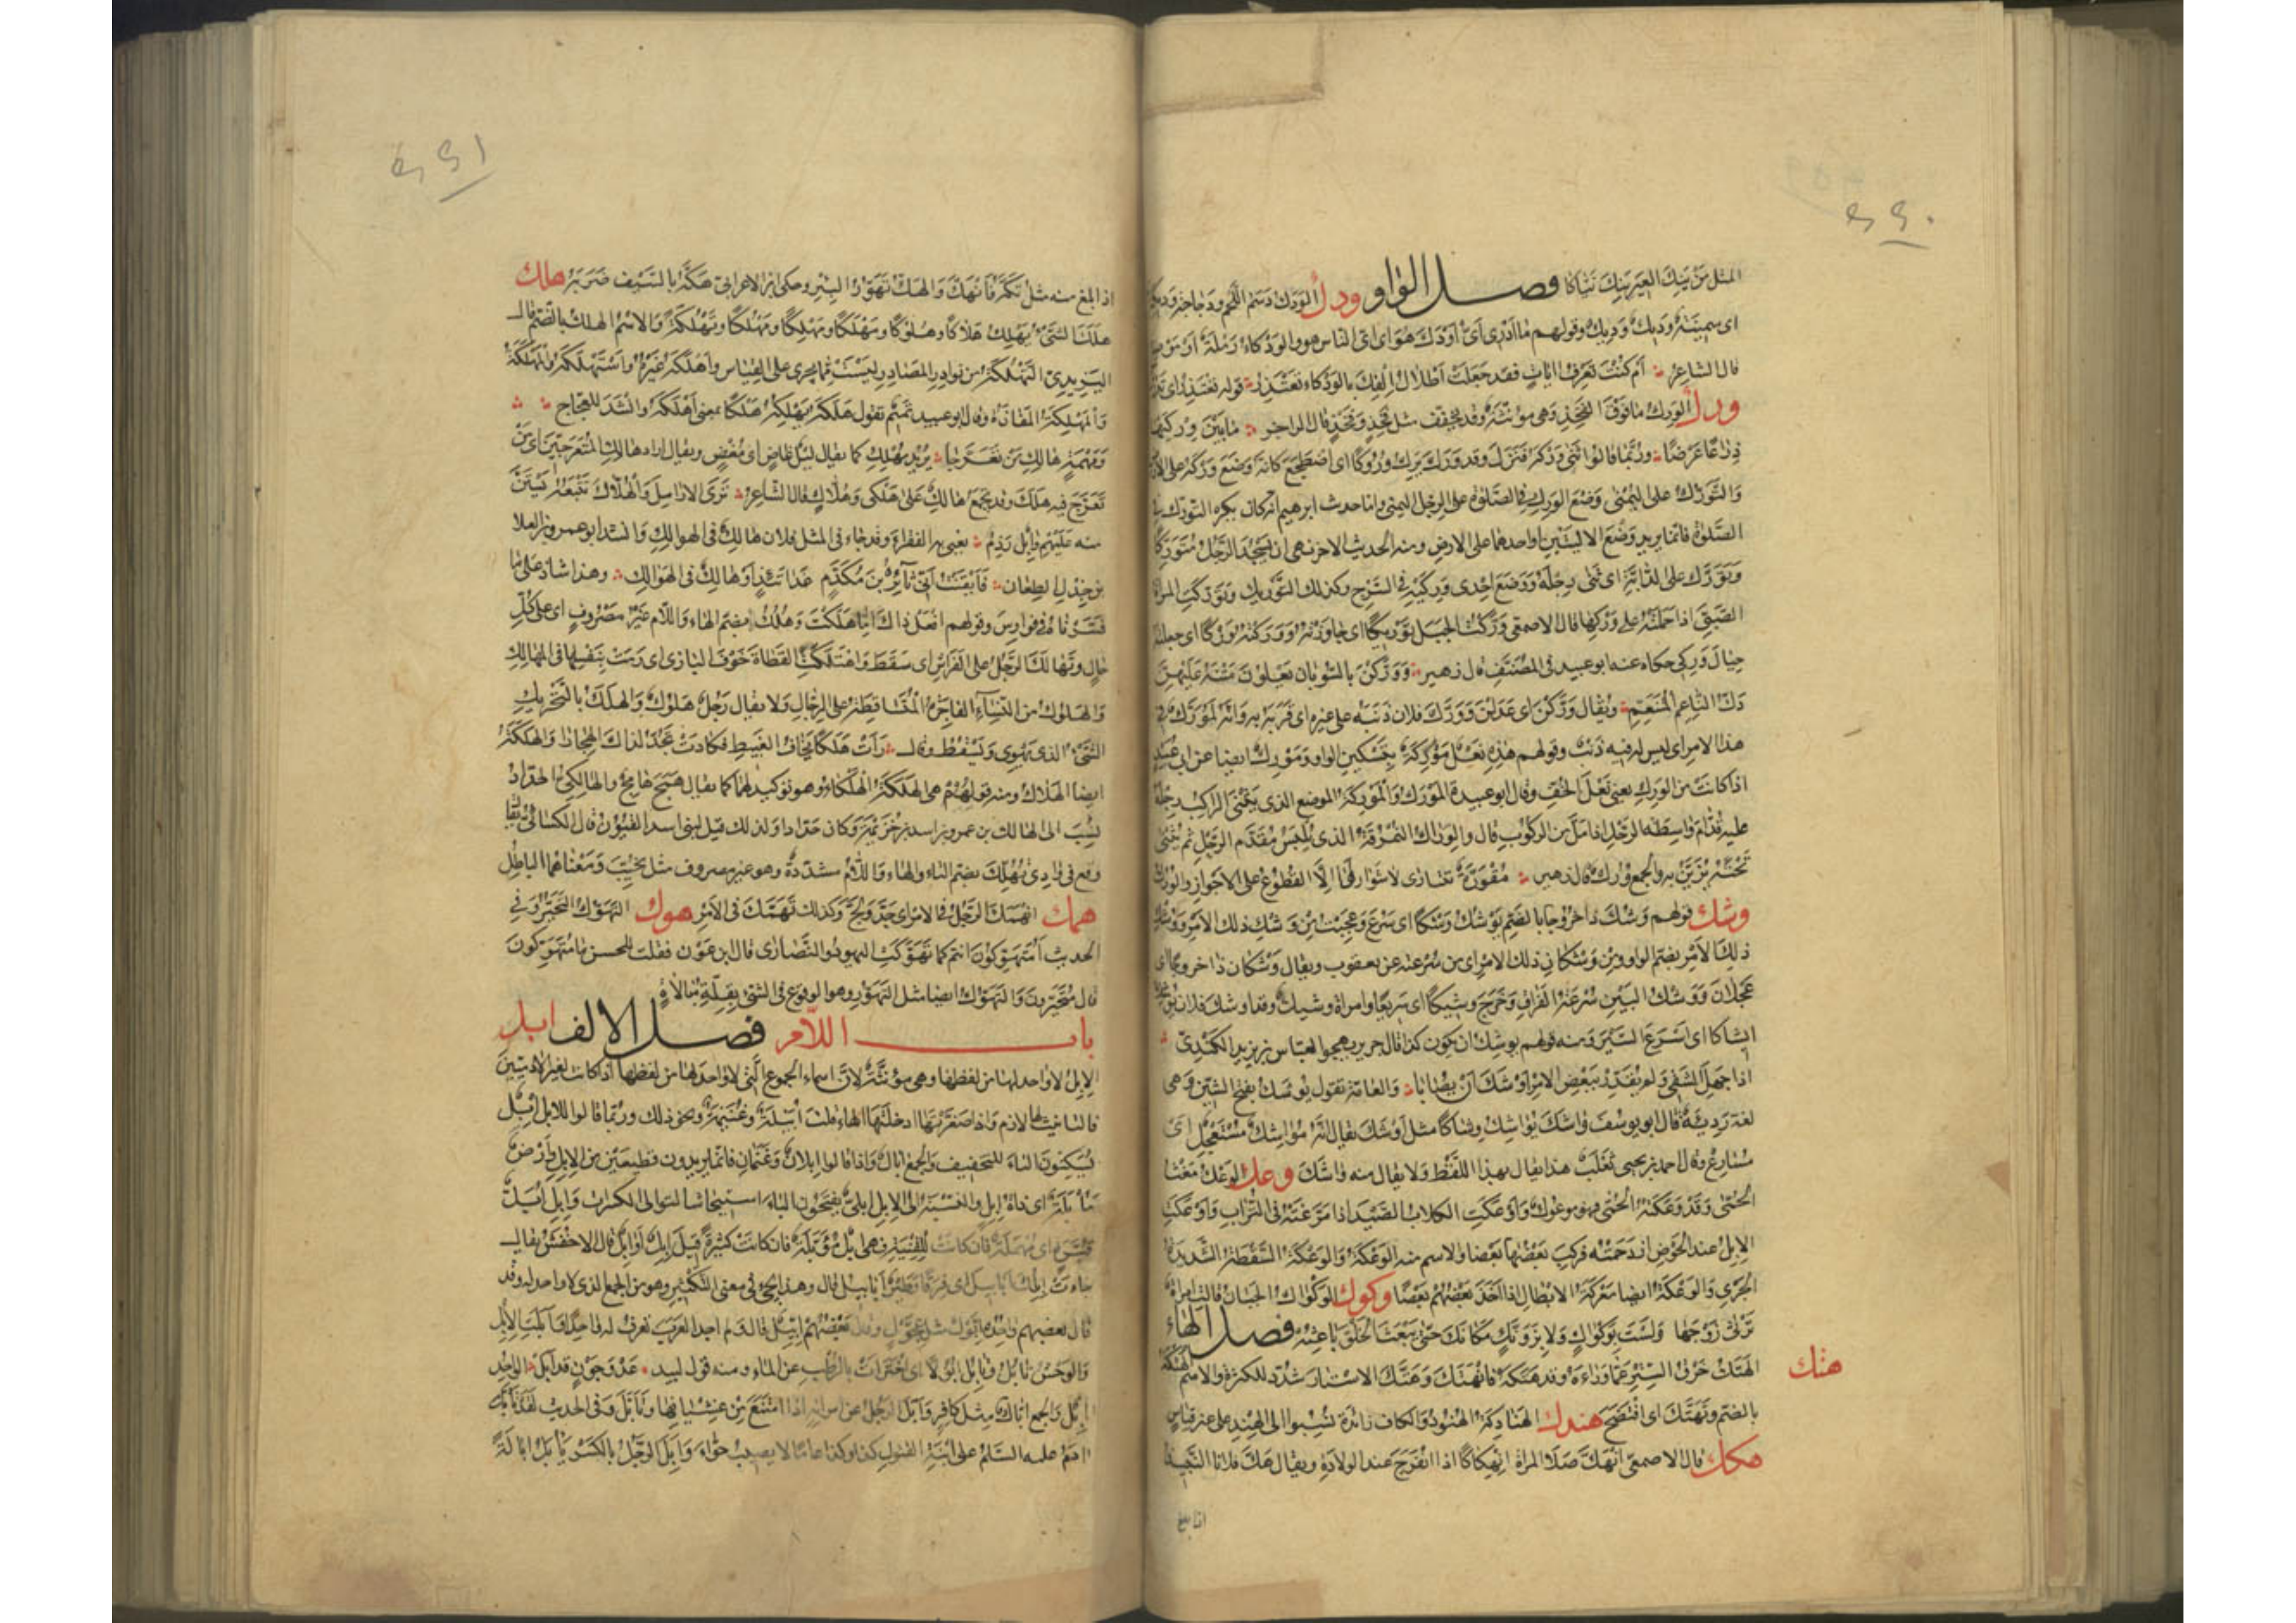 ٤٤٠
المثل مَنْ يَنِكِ العَيْرَ يَنِكْ نَيَّاكًا فصل الواو ودك الوَدَكُ دَسَمُ اللَّحْمِ ودَجاجة وديكة
اى سمينة وديك ووديك وقولهم ما ادرى اىّ اودك هو اى اىّ الناس هو والودكاء رملة او موضع
قال الشاعر أم كنت تعرف اياتٍ فقد جعلت أطلال إلفك بالودكاء تعتذر قوله تعتذر اى
ورك الورك ما فوق الفخذ وهى مؤنثة وقد يخفف مثل فخذ وفخذ قال الراجز ما بين وركيها
ذراعًا عرضًا وربّما قالوا ثنى وركه فنزل وقد ورك يرك وروكا اى اضطجع كانه وضع وركه على الارض
والتورك على اليمنى وضع الورك فى الصلوة على الرجل اليمنى واما حديث ابرهيم انه كان يكره التورك فى
الصلوة فانما يريد وضع الاليتين او احداهما على الارض ومنه الحديث الاخر نهى ان يسجد الرجل متوركا
وتورك على الدابة اى ثنى رجله ووضع احدى وركيه فى السرج وكذلك التوريك وتوركت المراة
الصبى اذا حملته على وركها قال الاصمعى وركت الجبل توريكا اى جاوزته ووركته وركا اى جعلته
حيال وركى حكاه عنه ابو عبيد فى المصنف قال زهير ووركن بالسوبان يعلون متنه عليهن
دلّ الناعم المتنعم ويقال وركن اى عدلن وورك فلان ذنبه على غيره اى قرفه به وانه لمورك فى
هذا الامر اى ليس له فيه ذنب وقولهم هذه نعل موركة بتسكين الواو ومورك ايضا عن ابى عبيد
اذا كانت من الورك يعنى نعل الخف وقال ابو عبيدة المورك والموركة الموضع الذى يثنى الراكب رجله
عليه قدام واسطة الرحل اذا مل من الركوب قال والوراك النمرقة التى تلبس مقدم الرحل ثم تثنى
تحته يزين به والجمع ورك قال زهير مقورة تتبارى لا شوار لها الا القطوع على الاجواز والورك
وشك قولهم وشك ذا خروجا بالضم يوشك وشكا اى سرع وعجبت من وشك ذلك الامر ووشك
ذلك الامر بضم الواو ومن وشكان ذلك الامر اى من سرعته عن يعقوب ويقال وشكان ذا خروجا اى
عجلان ووشك البين سرعة الفراق وخرج وشيكا اى سريعا وامراة وشيك وقد اوشك فلان يوشك
ايشاكا اى اسرع السير ومنه قولهم يوشك ان يكون كذا قال جرير يهجو العباس بن يزيد الكندى
اذا جهل الشقى ولم يقدر ببعض الامر اوشك ان يصابا والعامة تقول يوشك بفتح الشين وهى
لغة رديئة قال ابو يوسف واشك يواشك وشاكا مثل اوشك يقال انه مواشك مستعجل اى
مسارع وقال احمد بن يحيى ثعلب هذا يقال بهذا اللفظ ولا يقال منه واشك وعك الوعك مغث
الحمى وقد وعكته الحمى فهو موعوك واوعكت الكلاب الصيد اذا مرغته فى التراب واوعكت
الابل عند الحوض ازدحمت فركب بعضها بعضا والاسم منه الوعكة والوعكة السقطة الشديدة
الجرى والوعكة ايضا معركة الابطال اذا اخذ بعضهم بعضا وكوك الوكواك الجبان قالت امراة
ترثى زوجها ولست بوكواك ولا بزونك مكانك حتى يبعث الخلق باعثه فصل الهاء
هتك
الهتك خرق الستر عما وراءه وقد هتكه فانهتك وهتك الاستار شدد للكثرة والاسم الهتكة
بالضم وتهتك اى افتضح هندك الهنادكة الهنود والكاف زائدة نسبوا الى الهند على غير قياس
هكك قال الاصمعى انهك صلا المراة انهكاكا اذا انفرج عند الولادة ويقال هك فلانا النبيذ
اذا بلغ
٤٤١
اذا بلغ منه مثل تكهفانهك والهك تهور البئر وحكى ابن الاعرابى هكه بالسيف ضربه هلك
هلك الشئ يهلك هلاكا وهلوكا ومهلكا ومهلكا ومهلكا وتهلكة والاسم الهلك بالضم قال
اليزيدى التهلكة من نوادر المصادر ليست مما يجرى على القياس واهلكه غيره واستهلكه والمهلكة
والمهلكة المفازة وقال ابو عبيد تميم تقول هلكه يهلكه هلكا بمعنى اهلكه وانشد للعجاج
ومهمه هالك من تعرجا يريد مهلك كما يقال ليل غاض اى مغض ويقال اراد هالك المتعرجين اى من
تعرج فيه هلك وقد يجمع هالك على هلكى وهلاك قال الشاعر ترى الارامل والهلاك تتبعه يستن
منه عليهم وابل رذم يعنى به الفقراء وقد جاء فى المثل فلان هالك فى الهوالك وانشد ابو عمرو بن العلا
بن جذل الطعان فايقنت انى ثائر بن مكدم غداتئذ او هالك فى الهوالك وهذا شاذ على ما
فسرناه فى فوارس وقولهم افعل ذاك اما هلكت هلك بضم الهاء واللام غير مصروف اى على كل
حال وتهالك الرجل على الفراش اى سقط واهتلكت القطاة خوف البازى اى رمت بنفسها فى المهالك
والهلوك من النساء الفاجرة المتساقطة على الرجال ولا يقال رجل هلوك والهلك بالتحريك
الشئ الذى يهوى ويسقط وقال رات هلكا بنجاف الغبيط فكادت تجد لذاك الهجارا والهلكة
ايضا الهلاك ومنه قولهم هى الهلكة الهلكاء وهو توكيد لها كما يقال همج هامج والهالكى الحداد
نسب الى الهالك بن عمرو بن اسد بن خزيمة وكان حدادا ولذلك قيل لبنى اسد القيون قال الكسائى يقال
وقع فى وادى تهلك بضم التاء والهاء واللام مشددة وهو غير مصروف مثل تخيب ومعناهما الباطل
همك انهمك الرجل فى الامر اى جد ولج وكذلك تهمك فى الامر هوك التهوك التحير وفى
الحديث امتهوكون انتم كما تهوكت اليهود والنصارى قال ابن عون فقلت للحسن ما متهوكون
قال متحيرون والتهوك ايضا مثل التهور وهو الوقوع فى الشئ بقلة مبالاة
باب اللام فصل الالف ابل
الابل لا واحد لها من لفظها وهى مؤنثة لان اسماء الجموع التى لا واحد لها من لفظها اذا كانت لغير الادميين
فالتانيث لها لازم واذا صغرتها ادخلتها الهاء قلت ابيلة وغنيمة ونحو ذلك وربما قالوا للابل ابل
يسكنون الباء للتخفيف والجمع ابال واذا قالوا ابلان وغنمان فانما يريدون قطيعين من الابل وارض
مابلة اى ذات ابل والنسبة الى الابل ابلى يفتحون الباء استيحاشا لتوالى الكسرات وابل ابل
اى مهملة فان كانت للقنية فهى ابل مؤبلة فان كانت كثيرة قيل ابل اوابل قال الاخفش يقال
جاءت ابلك ابابيل اى فرقا وطير ابابيل قال وهذا يجئ فى معنى التكثير وهو من الجمع الذى لا واحد له وقد
قال بعضهم واحده ابول مثل عجول وقال بعضهم ابيل قال ولم اجد العرب تعرف له واحدا وابلت الابل
والوحش تابل وتابل ابولا اى اجتزات بالرطب عن الماء ومنه قول لبيد الواحد
ابل والجمع ابال مثل كافر وابل الرجل عن امراته اذا امتنع من غشيانها وتابل وفى الحديث لقد تابل
ادم عليه السلام على ابنه المقتول كذا وكذا عاما لا يصيب حواء وابل الرجل بالكسر يابل ابالة